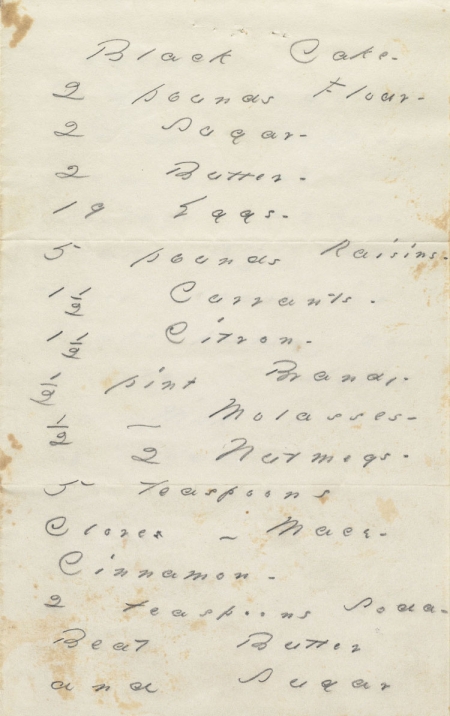 Black Cake.
2 pounds Flour.
2 Sugar.
2 Butter.
19 Eggs.
5 pounds Raisins.
1 1/2 Currants.
1 1/2 Citron.
1/2 pint Brandy.
1/2 — Molasses.
2 Nutmegs.
5 teaspoons
Cloves - Mace.
Cinnamon.
2 teaspoons Soda.
Beat Butter
and Sugar